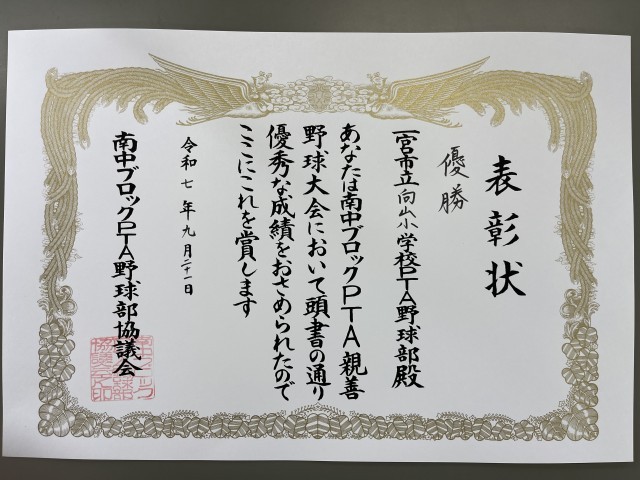 表彰状
優勝
一宮市立向山小学校PTA野球部殿
あなたは南中ブロックPTA親善
野球大会において頭書の通り
優秀な成績をおさめられたので
ここにこれを賞します
令和七年九月二十一日
南中ブロックPTA野球部協議会